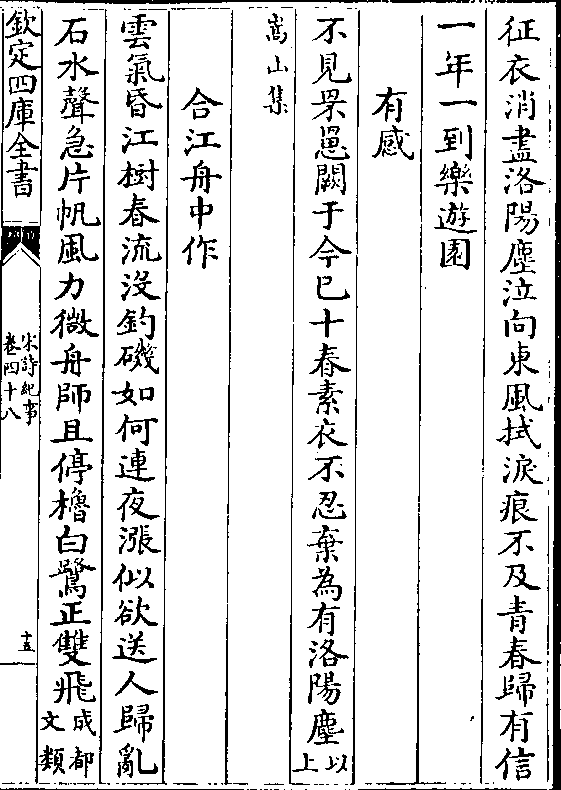 征衣消盡洛陽塵泣向東風拭淚痕不及青春歸有信
一年一到樂遊園
有感
不見罘罳闕于今已十春素衣不忍棄為有洛陽塵以上
嵩山集
合江舟中作
雲氣昏江樹春流沒釣磯如何連夜漲似欲送人歸亂
石水聲急片帆風力微舟師且停櫓白鷺正雙飛成都文類
欽定四庫全書
宋詩紀事
卷四十八
十五